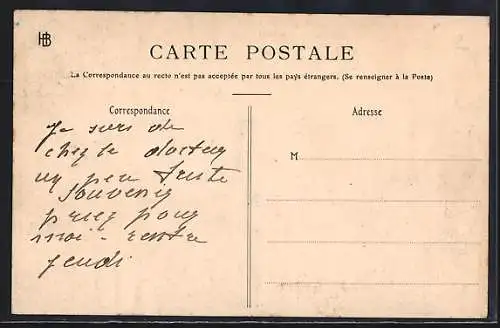 HB
CARTE POSTALE
La Correspondance au recto n'est pas acceptée par tous les pays étrangers. (Se renseigner à la Poste)
Correspondance
Je sors de
chez le docteur
un peu triste
Souvenir
priez pour
moi - rentre
jeudi
Adresse
M